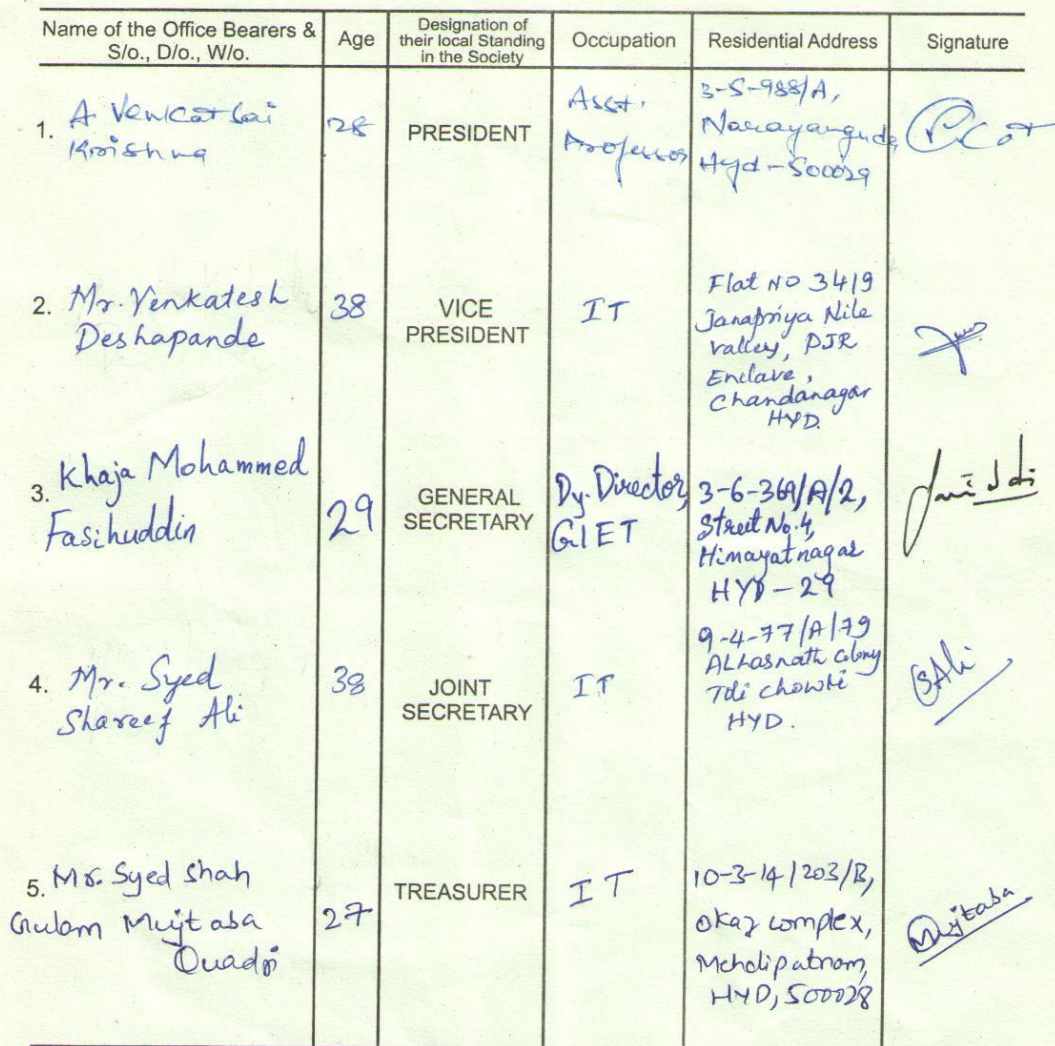 Name of the Office Bearers &
S/o., D/o., W/o.
Age
Designation of
their local Standing
in the Society
Occupation
Residential Address
Signature
1. A Venkat Sai
Krishna
28
PRESIDENT
Asst.
Professor
3-5-988/A,
Narayanguda,
Hyd-500029
2. Mr. Venkatesh
Deshapande
38
VICE
PRESIDENT
IT
Flat NO 3419
Janapriya Nile
valley, PJR
Enclave,
Chandanagar
HYD.
3. Khaja Mohammed
Fasihuddin
29
GENERAL
SECRETARY
Dy. Director,
GIET
3-6-369/A/2,
Street No.4,
Himayatnagar
HYD-29
4. Mr. Syed
Shareef Ali
38
JOINT
SECRETARY
IT
9-4-77/A/79
ALhasnath colony
Toli chowki
HYD.
SAli
5. Mr. Syed Shah
Gulam Mujtaba
Quadri
27
TREASURER
IT
10-3-14/203/B,
Okaz complex,
Mehdipatnam,
HYD, 500028
Mujtaba